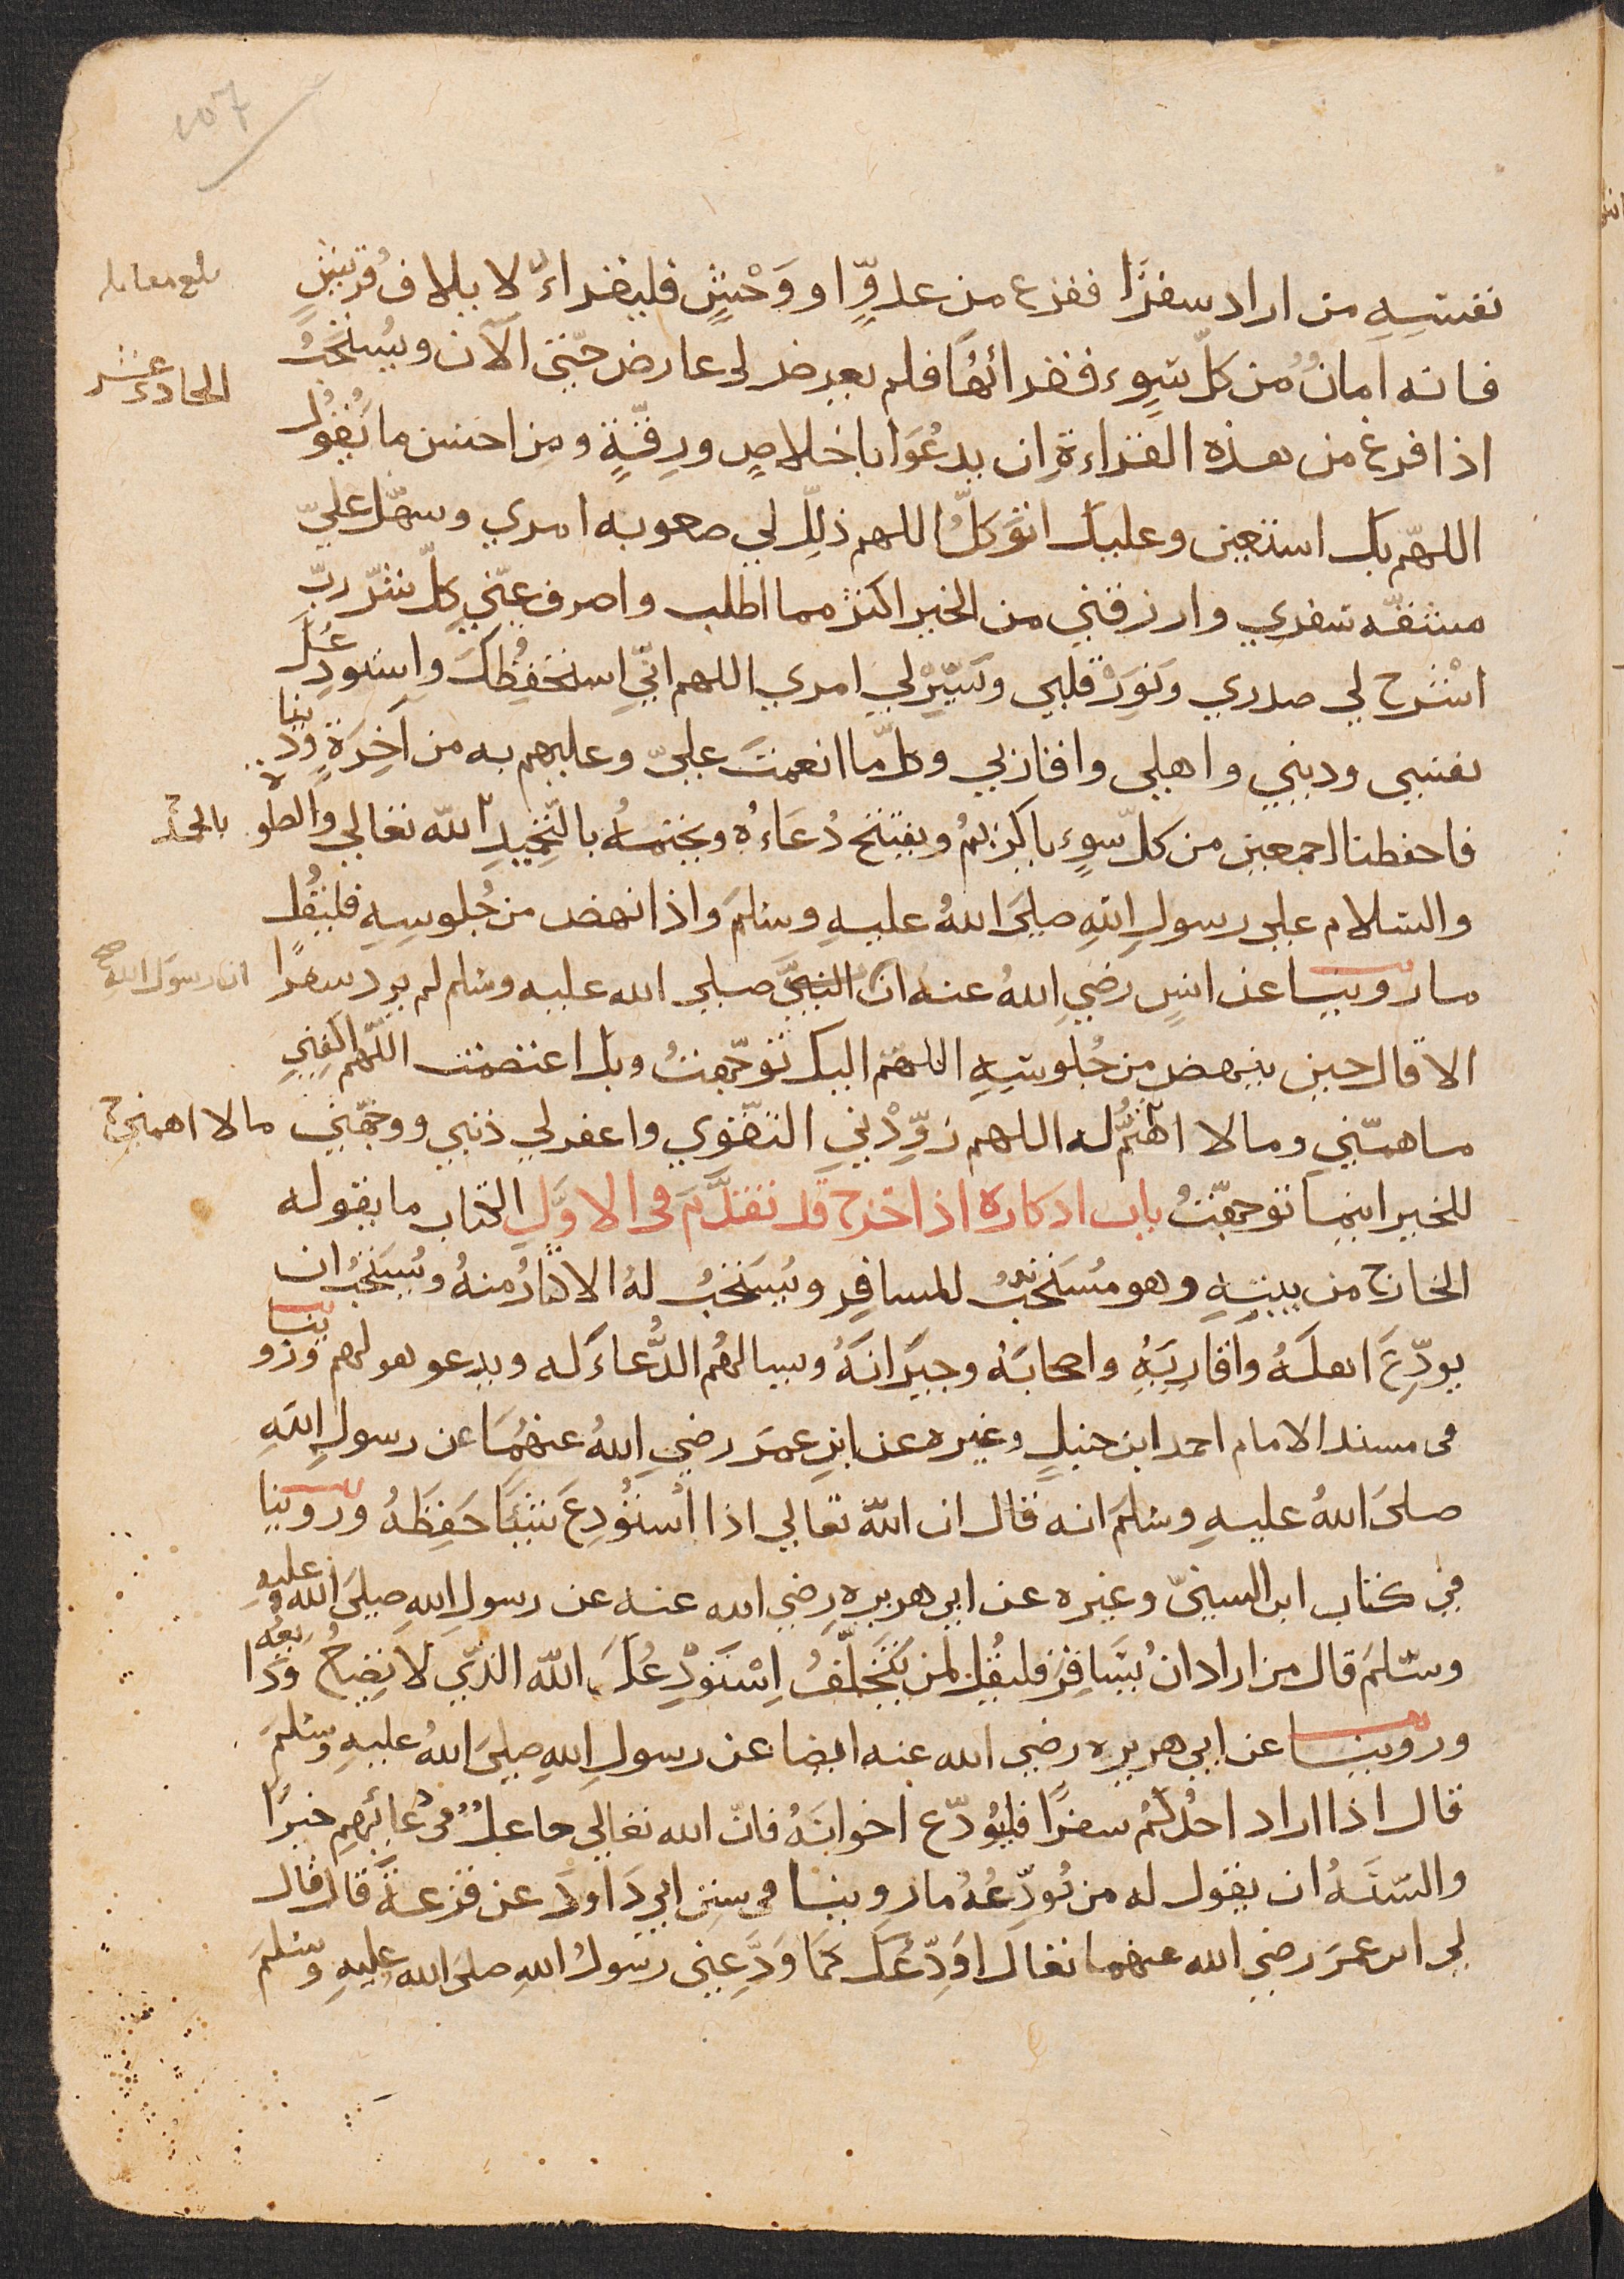 107
نفسه من اراد سفرًا ففزع من عدوٍّ او وَحْشٍ فليقراءّ لا يلاف قُريشٍ
بلغ مقابله
فانه امانٌ من كلّ سوء فقرائتُها فلم يعرض لي عارض حتّى الآن ويُستحَبّ
الحادي عشر
اذا فرغ من هذه القراءة ان يدعُوَا باخلاصٍ ورِقّةٍ ومن احسن ما يَقُولُ
اللهمّ بك استعين وعليك اتوَكّلُ اللهم ذلِّل لي صعوبه امري وسهّل عليّ
مشقّه سفري وارزقني من الخير اكثر مما اطلب واصرف عنّي كلّ شرّ ربّ
اشْرح لي صدري ونَوِّرْ قلبي ويَسِّرْ لي امري اللهم انّي استحفِظُك واستودِعُك
نفسي وديني واهلي واقاربي وكلّ ما انعمتَ عليّ وعليهم به من آخِرَةٍ ودنيا
فاحفظنا اجمعين من كلّ سوٍء ياكريمُ ويفتتح دُعَاءُه ويختمه بالتحميدِ الله تعالي والصلوه
بالحمد
والسلام على رسولِ اللهِ صلى اللهُ عليهِ وسلمَ واذا نهض من جُلوسِه فليَقُل
ما روينا عن انسٍ رضي اللهُ عنه انّ النبيَّ صلى الله عليه وسلم لم يرد سفرًا
ان رسول الله صح
الا قال حين ينهض من جُلوسِهِ اللهم اليك توجّهتُ وبك اعتصمت اللّهم اكفِني
ما همّني وما لا اهْتمُّ له اللهم زوِّدْني التقوي واغفر لي ذنبي ووجّهني
ما لا اهمني
للخير اينما توجّهتُ باب اذكاره اذا خرج قد تقدَّم في الاوَّلِ الكتاب ما يقوله
الخارج من بيتهِ وهو مُستحَبٌّ للمسافِر ويُستحَبّ لهُ الاكثارُ منهُ ويُستحَبّ ان
يودّعَ اهلَهُ واقاربَهُ واصحابَهُ وجيرَانَهُ ويسالهُم الدُّعاءَ له ويدعو هو لهم وروينا
في مسند الامام احمد ابن حنبلٍ وغيره عن ابن عمَرَ رضي اللهُ عنهُمَا عن رسولِ اللهِ
صلى اللهُ عليهِ وسلمَ انه قال ان اللّه تعالي اذا اسْتُودِعَ شيئًا حَفِظَهُ وروينا
في كتاب ابن السنيّ وغيره عن ابي هريره رضي الله عنه عن رسولِ الله صلى اللهُ عليهِ
وسلمَ قال من اراد ان يُسَافِرَ فليقُل لمن يَتَخَلّفُ اسْتَوْدِعُكَ اللّه الذّي لا يَضيعُ ودَائعهُ
وروينا عن ابي هريره رضي الله عنه ايضا عن رسولِ اللهِ صلى اللهُ عليهِ وسلمَ
قال اذا اراد احدُكمُ سفرًا فليُودّع اخوانَهُ فانّ الله تعالي جاعلٌ في دُعائهم خيرًا
والسّنّهُ ان يقول له من يُودّعُهُ ما روينا في سنن ابي دَاودَ عن قزعةَ قال قال
لي ابن عمَرَ رضي الله عنهما تعال اوَدّعْكَ كمَا وَدَّعني رسُولُ اللهِ صلى الله عليهِ وسلمَ